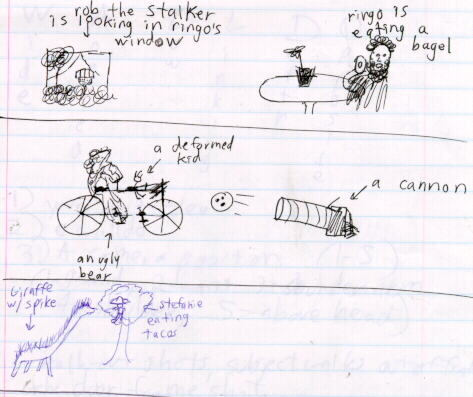 rob the stalker
is looking in ringo's
window
ringo is
eating a
bagel
a deformed
kid
a cannon
an ugly
bear
Giraffe
w/ spike
stefanie
eating
tacos